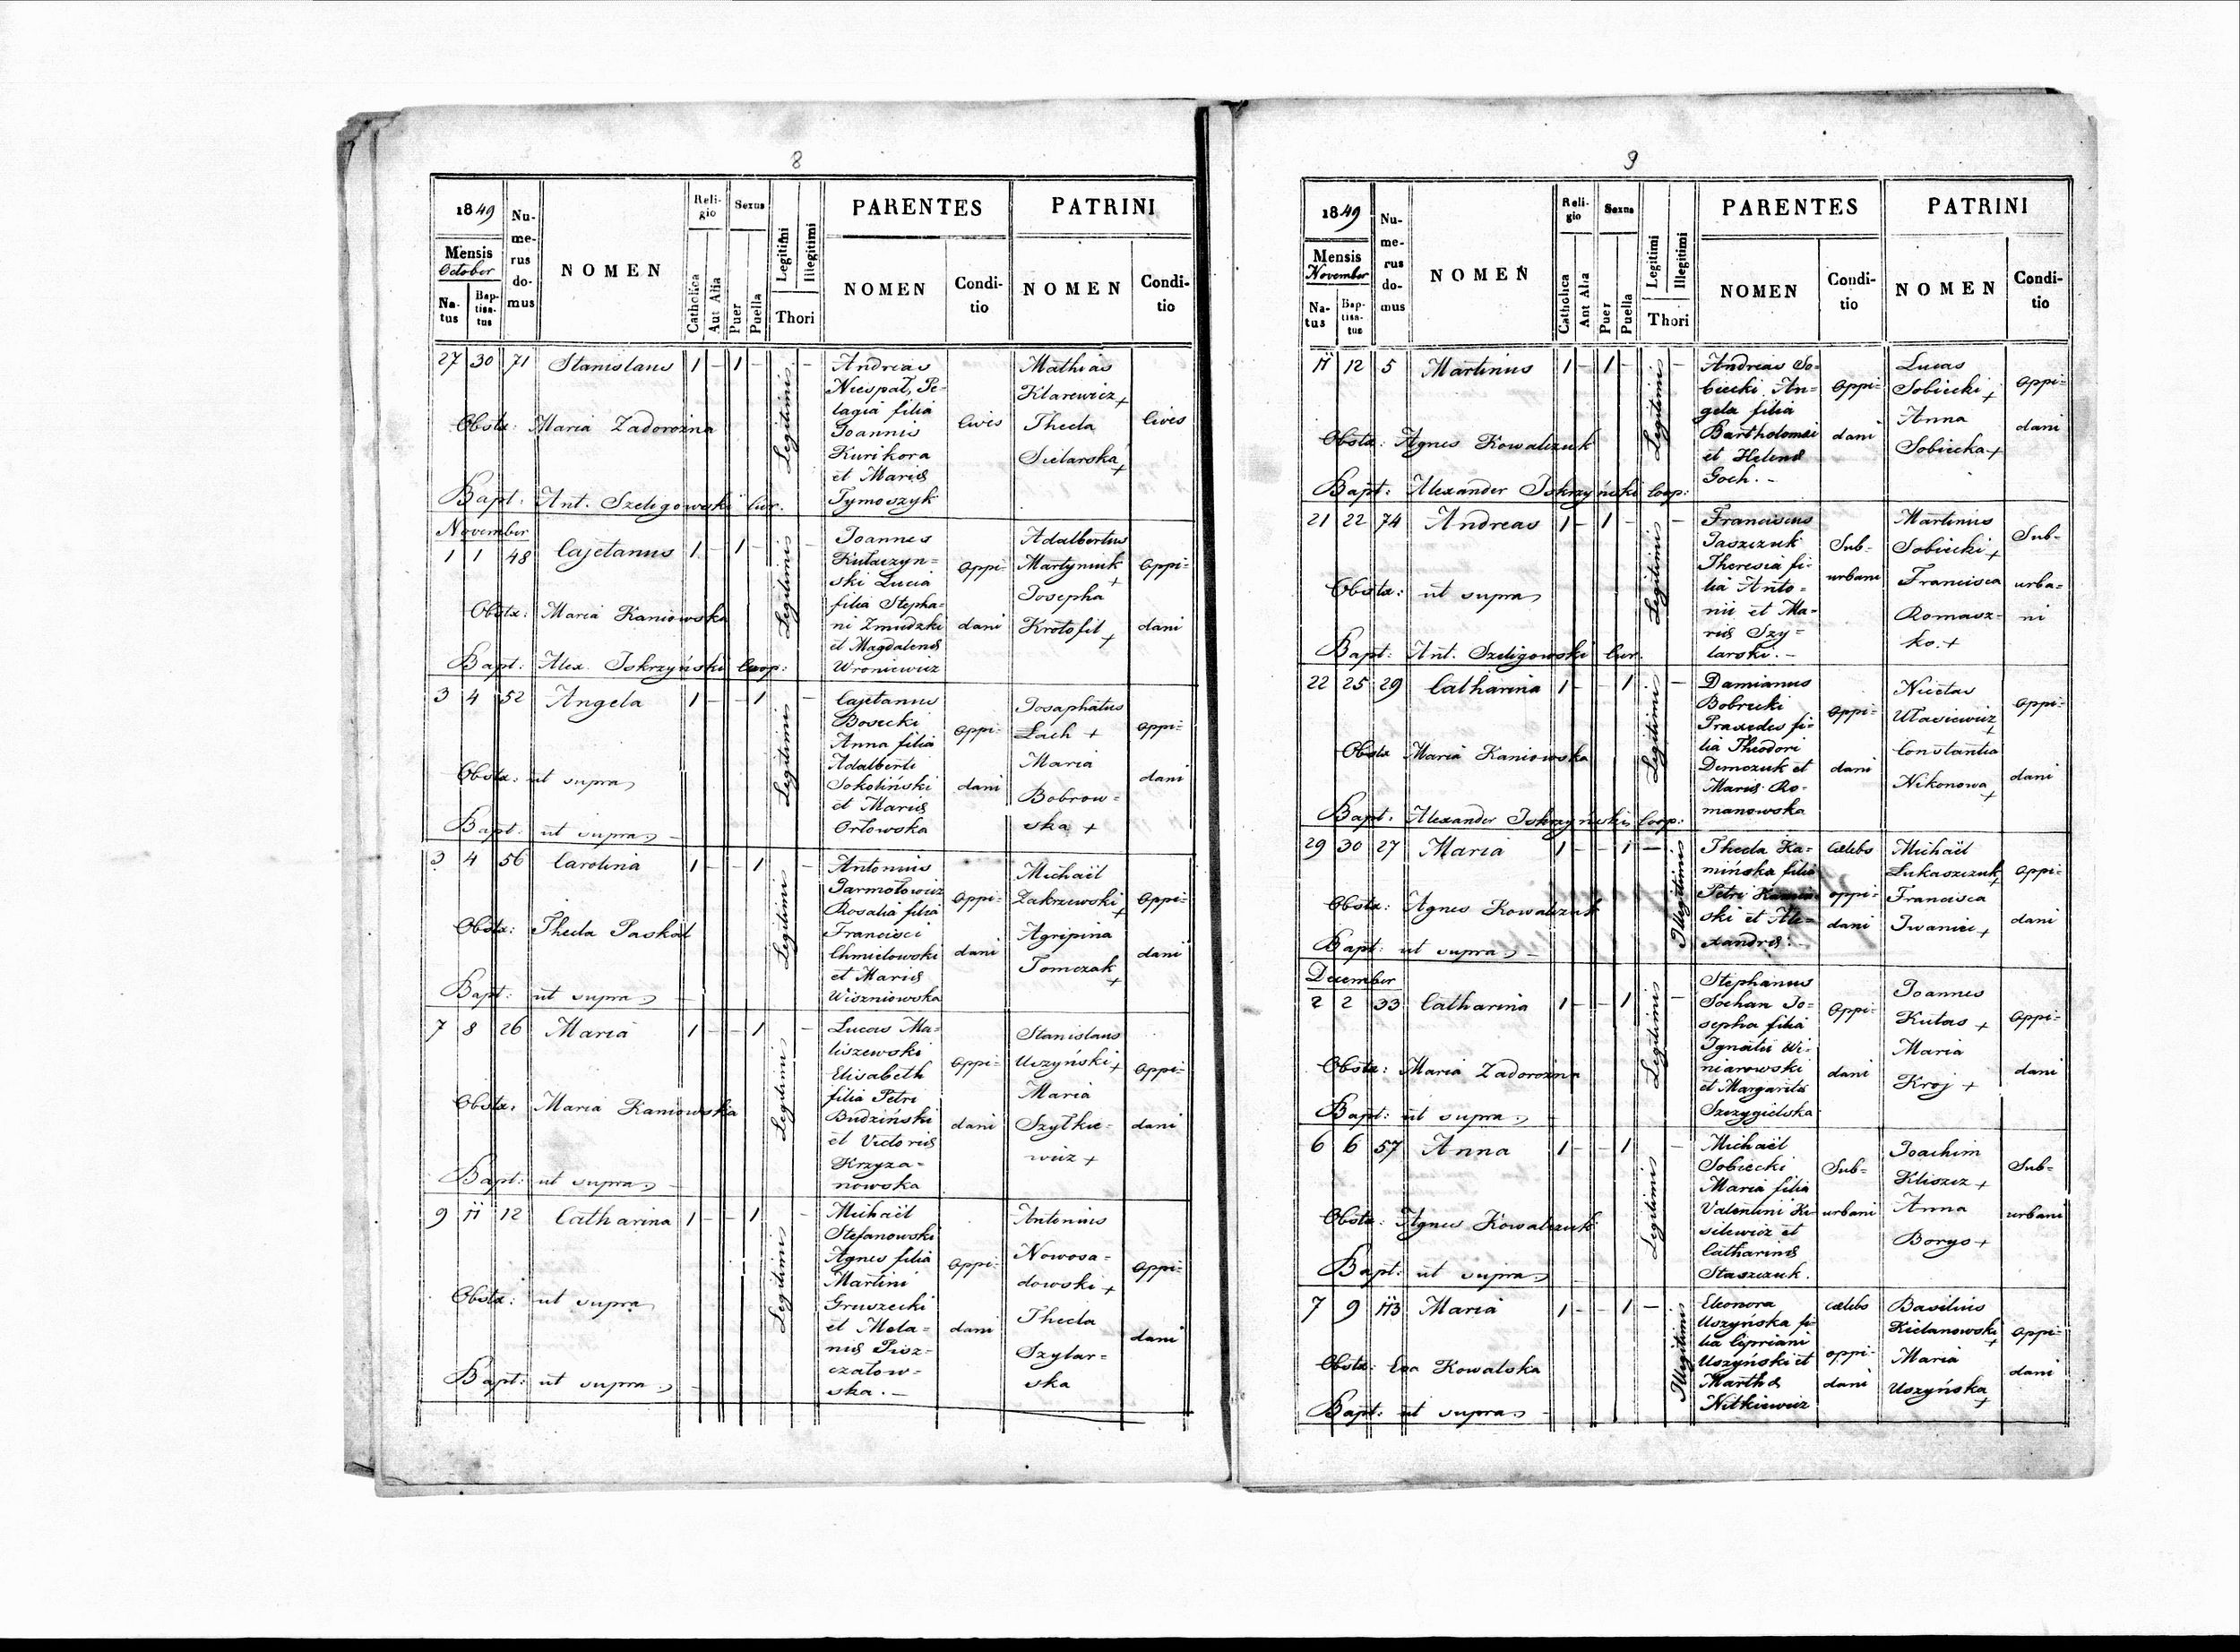 8
1849
Mensis
October
Na-
tus
Bap-
tisa-
tus
Nu-
me-
rus
do-
mus
NOMEN
Reli-
gio
Catholica
Aut Alia
Sexus
Puer
Puella
Legitimi
Illegitimi
Thori
PARENTES
NOMEN
Condi-
tio
PATRINI
NOMEN
Condi-
tio
27 30 71 Stanislaus 1 – 1 –
Legitimis
–
Obstx: Maria Zadorożna
Bapt: Ant. Szeligowski Cur.
Andreas
Niespał, Pe-
lagia filia
Joannis
Kurikora
et Mariæ
Tymoszyk
Cives
Mathias
Klarewicz +
Thecla
Sielarska +
Cives
November
1 1 48 Cajetanus 1 – 1 –
Legitimis
–
Obstx: Maria Kaniowska
Bapt: Alex. Iskrzyński Coop:
Joannes
Kułaczyn=
ski Lucia
filia Stepha=
ni Zmudzki
et Magdalenæ
Wroniewicz
Oppi=
dani
Adalbertus
Martyniuk +
Josepha
Krotofil +
Oppi=
dani
3 4 52 Angela 1 – – 1
Legitimis
–
Obstx: ut supra
Bapt: ut supra –
Cajetanus
Bosecki
Anna filia
Adalberti
Sokoliński
et Mariæ
Orłowska
Oppi=
dani
Josaphatus
Łach +
Maria
Bobrow=
ska +
Oppi=
dani
3 4 56 Carolina 1 – – 1
Legitimis
–
Obstx: Thecla Paskal
Bapt: ut supra –
Antonius
Jarmołowicz
Rosalia filia
Francisci
Chmielowski
et Mariæ
Wiszniowska
Oppi=
dani
Michaël
Zakrzewski +
Agripina
Tomczak +
Oppi=
dani
7 8 26 Maria 1 – – 1
Legitimis
–
Obstx. Maria Kaniowska
Bapt: ut supra –
Lucas Ma=
liszewski
Elisabeth
filia Petri
Budziński
et Victoriæ
Krzyża=
nowska
Oppi=
dani
Stanislaus
Uszyński +
Maria
Szytkie=
wicz +
Oppi=
dani
9 11 12 Catharina 1 – – 1
Legitimis
–
Obstx: ut supra
Bapt: ut supra –
Michaël
Stefanowski
Agnes filia
Martini
Gruszecki
et Mela=
niæ Pisz=
czatow=
ska. –
Oppi=
dani
Antonius
Nowosa=
dowski +
Thecla
Szylar=
ska
Oppi=
dani
9
1849
Mensis
November
Na-
tus
Bap-
tisa-
tus
Nu-
me-
rus
do-
mus
NOMEN
Reli-
gio
Catholica
Aut Alia
Sexus
Puer
Puella
Legitimi
Illegitimi
Thori
PARENTES
NOMEN
Condi-
tio
PATRINI
NOMEN
Condi-
tio
11 12 5 Martinus 1 – 1 –
Legitimis
–
Obstx: Agnes Kowalczuk
Bapt: Alexander Iskrzyński Coop:
Andreas So=
biecki An=
gela filia
Bartholomei
et Helenæ
Goch. –
Oppi=
dani
Lucas
Sobiecki +
Anna
Sobiecka +
Oppi=
dani
21 22 74 Andreas 1 – 1 –
Legitimis
–
Obstx: ut supra
Bapt: Ant. Szeligowski Cur.
Franciscus
Jaszczuk
Theresia fi=
lia Anto=
nii et Ma=
riæ Szy=
larski. –
Sub=
urbani
Martinus
Sobiecki +
Francisca
Romasz=
ko. +
Sub=
urba=
ni
22 25 29 Catharina 1 – – 1
Legitimis
–
Obstx Maria Kaniowska
Bapt. Alexander Iskrzyński Coop:
Damianus
Bobrecki
Praxedes fi=
lia Theodori
Demczuk et
Mariæ Ro=
manowska
Oppi=
dani
Nicetas
Ułasiewicz +
Constantia
Nikonowa +
Oppi=
dani
29 30 27 Maria 1 – – 1 –
Illegitimis
Obstx: Agnes Kowalczuk
Bapt: ut supra –
Thecla Ka=
mińska filia
Petri Kamiń=
ski et Ale=
xandræ. –
Cælebs
oppi=
dani
Michaël
Łukaszczuk +
Francisca
Iwanici +
Oppi=
dani
December
2 2 33 Catharina 1 – – 1
Legitimis
–
Obstx: Maria Zadorożna
Bapt: ut supra –
Stephanus
Sochan Jo=
sepha filia
Ignatii Wi=
niarowski
et Margaritæ
Szczygielska
Oppi=
dani
Joannes
Kutas +
Maria
Kroj +
Oppi=
dani
6 6 57 Anna 1 – – 1
Legitimis
–
Obstx: Agnes Kowalczuk
Bapt: ut supra
Michaël
Sobiecki
Maria filia
Valentini Ki=
silewicz et
Catharinæ
Staszczuk.
Sub=
urbani
Joachim
Kliszcz +
Anna
Borys +
Sub=
urbani
7 9 113 Maria 1 – – 1 –
Illegitimis
Obstx: Eva Kowalska
Bapt: ut supra –
Eleonora
Uszyńska fi=
lia Cipriani
Uszyński et
Marthæ
Nitkiewicz
cælebs
oppi=
dani
Basilius
Kielanowski +
Maria
Uszyńska +
Oppi=
dani